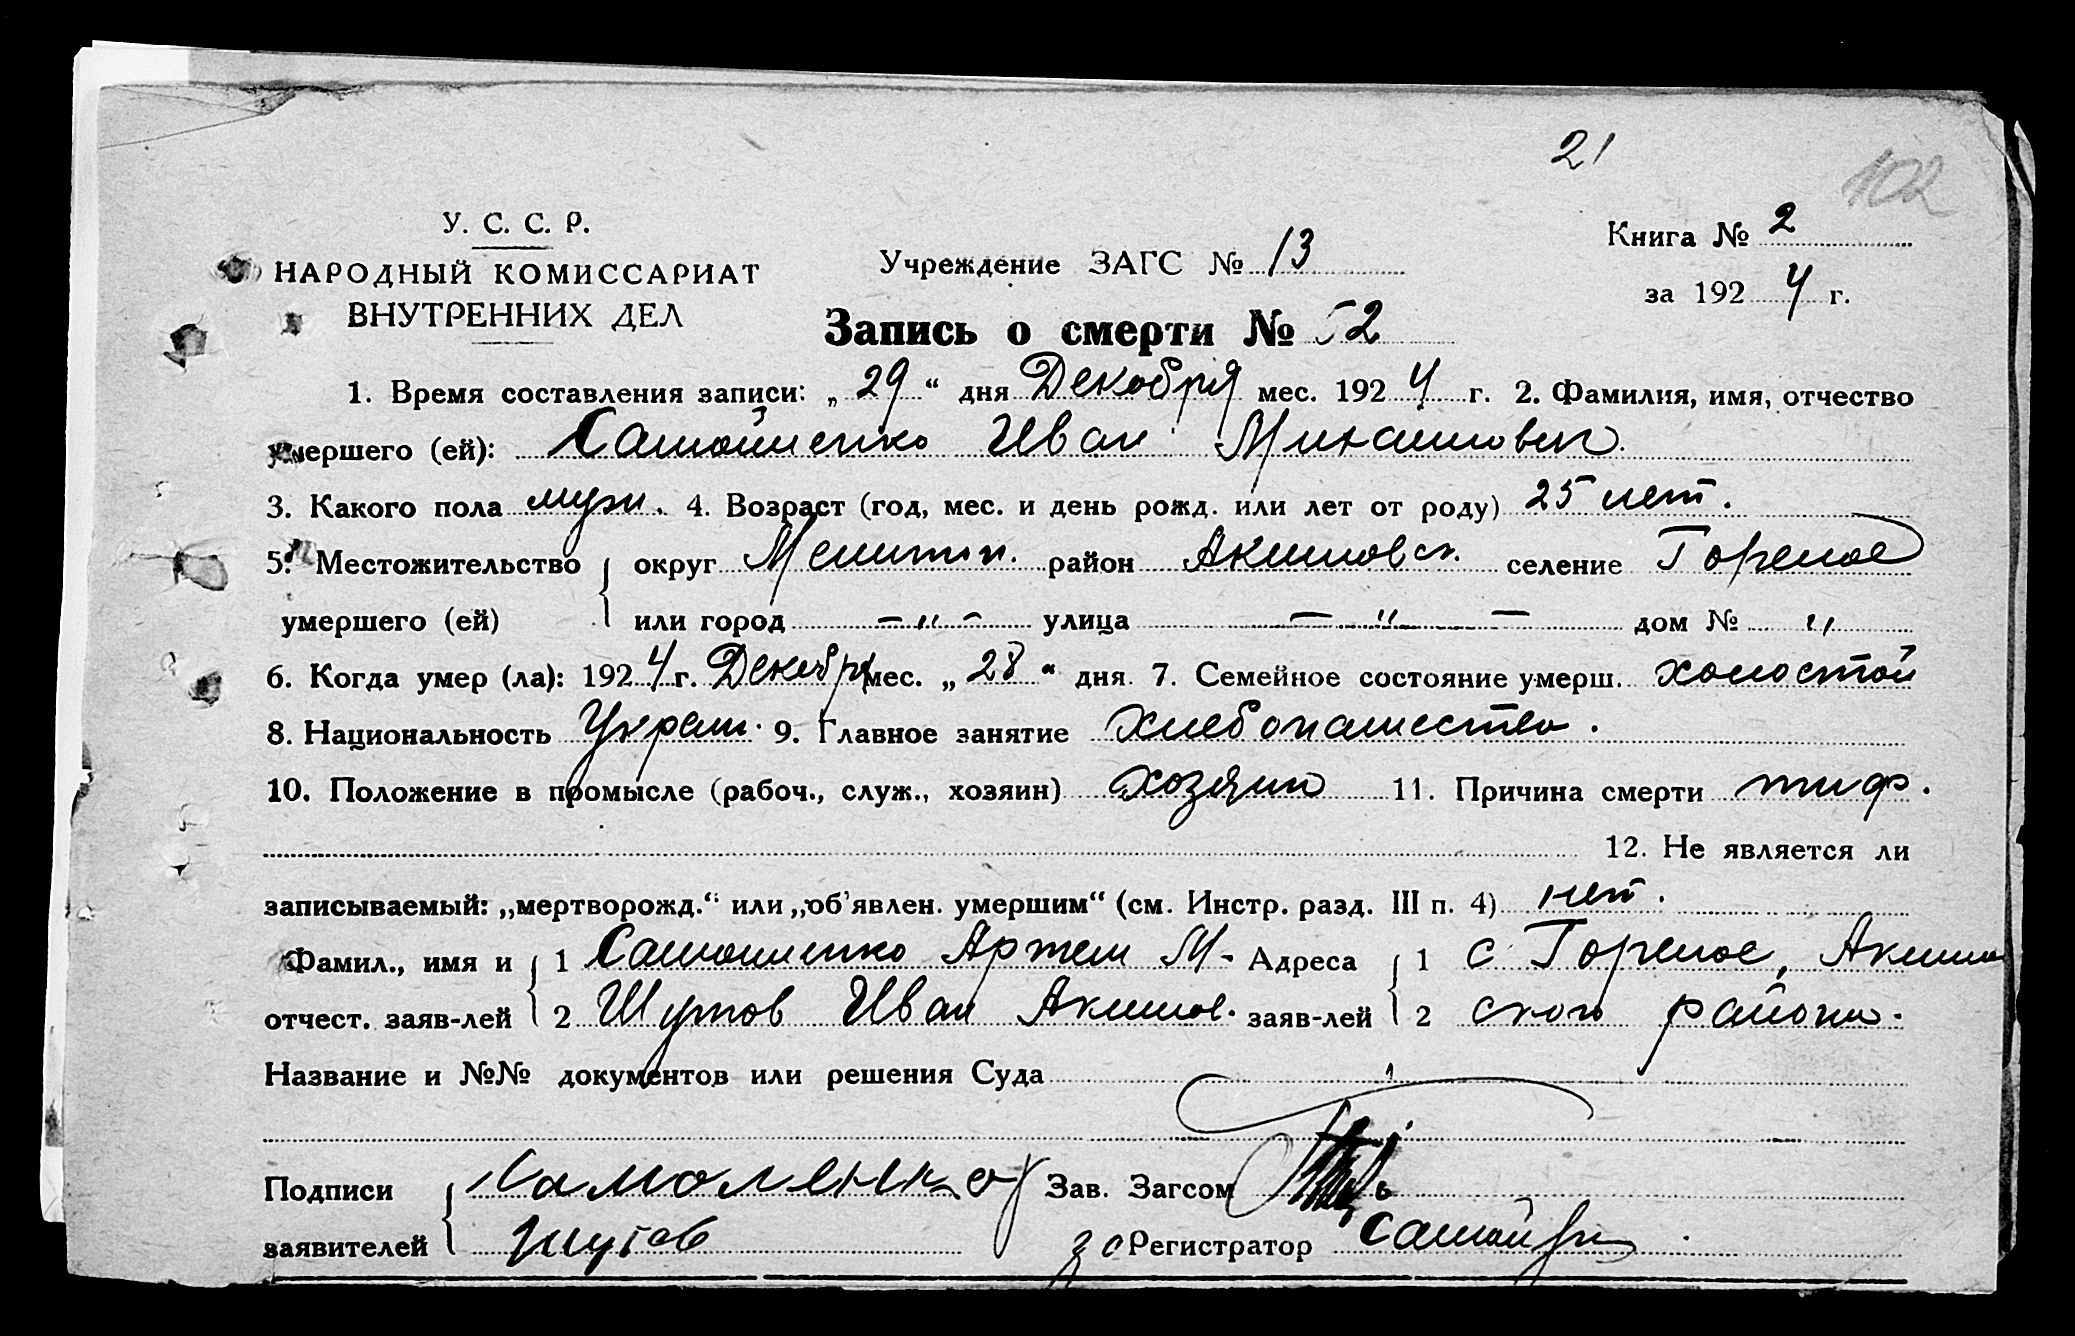 21
102
У. С. С. Р.
НАРОДНЫЙ КОМИССАРИАТ
ВНУТРЕННИХ ДЕЛ
Учреждение ЗАГС № 13
Книга № 2
за 1924 г.
Запись о смерти № 52
1. Время составления записи: „29“ дня Декабря мес. 1924 г. 2. Фамилия, имя, отчество
умершего (ей): Самойленко Иван Михайлович
3. Какого пола муж. 4. Возраст (год, мес. и день рожд. или лет от роду) 25 лет.
5. Местожительство округ Мелитоп. район Акимовск. селение Горелое
умершего (ей) или город — „ — улица — „ — дом № „
6. Когда умер (ла): 1924 г. Декабря мес. „28“ дня. 7. Семейное состояние умерш. холостой
8. Национальность Украин. 9. Главное занятие хлебопашество.
10. Положение в промысле (рабоч., служ., хозяин) хозяин 11. Причина смерти тиф.
12. Не является ли
записываемый: „мертворожд.“ или „об’явлен. умершим“ (см. Инстр. разд. III п. 4) нет.
Фамил., имя и 1 Самойленко Артем М. Адреса 1 с. Горелое, Акимов
отчест. заяв-лей 2 Шутов Иван Акимов. заяв-лей 2 ского района.
Название и №№ документов или решения Суда
Подписи Самоленко Зав. Загсом
заявителей Шутов Регистратор